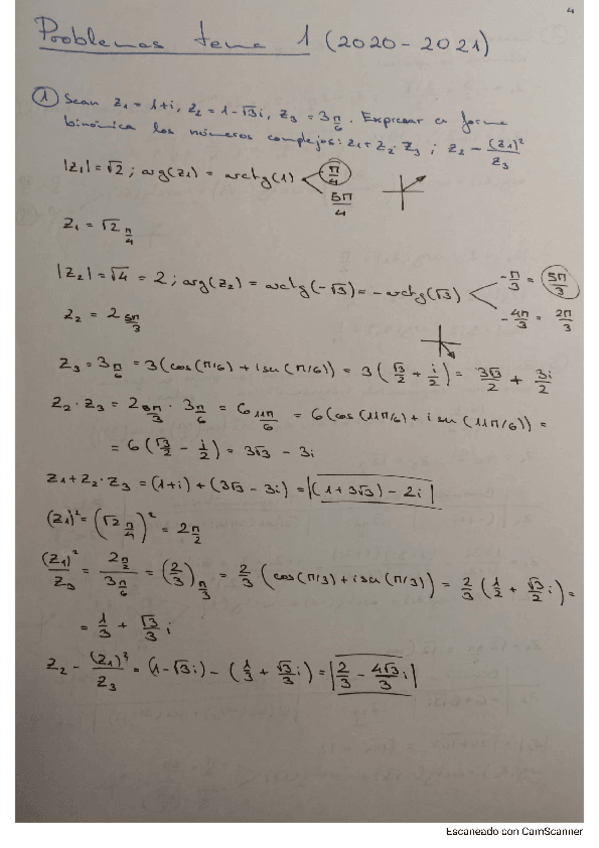 4
Problemas tema 1 (2020-2021)
① Sean z₁ = 1+i, z₂ = 1-√3i, z₃ = 3_{π/6}. Expresar en forma
binómica los números complejos: z₁+z₂·z₃ ; z₂ - (z₁)²/z₃
|z₁| = √2 ; arg(z₁) = arctg(1) < π/4
5π/4
z₁ = √2_{π/4}
|z₂| = √4 = 2 ; arg(z₂) = arctg(-√3) = -arctg(√3) < -π/3 = 5π/3
-4π/3 = 2π/3
z₂ = 2_{5π/3}
z₃ = 3_{π/6} = 3(cos(π/6) + i sen(π/6)) = 3(√3/2 + i/2) = 3√3/2 + 3i/2
z₂·z₃ = 2_{5π/3} · 3_{π/6} = 6_{11π/6} = 6(cos(11π/6) + i sen(11π/6)) =
= 6(√3/2 - i/2) = 3√3 - 3i
z₁+z₂·z₃ = (1+i) + (3√3 - 3i) = |(1+3√3) - 2i|
(z₁)² = (√2_{π/4})² = 2_{π/2}
(z₁)²/z₃ = 2_{π/2}/3_{π/6} = (2/3)_{π/3} = 2/3 (cos(π/3) + i sen(π/3)) = 2/3 (1/2 + √3/2 i) =
= 1/3 + √3/3 i
z₂ - (z₁)²/z₃ = (1-√3i) - (1/3 + √3/3 i) = |2/3 - 4√3/3 i|
Escaneado con CamScanner